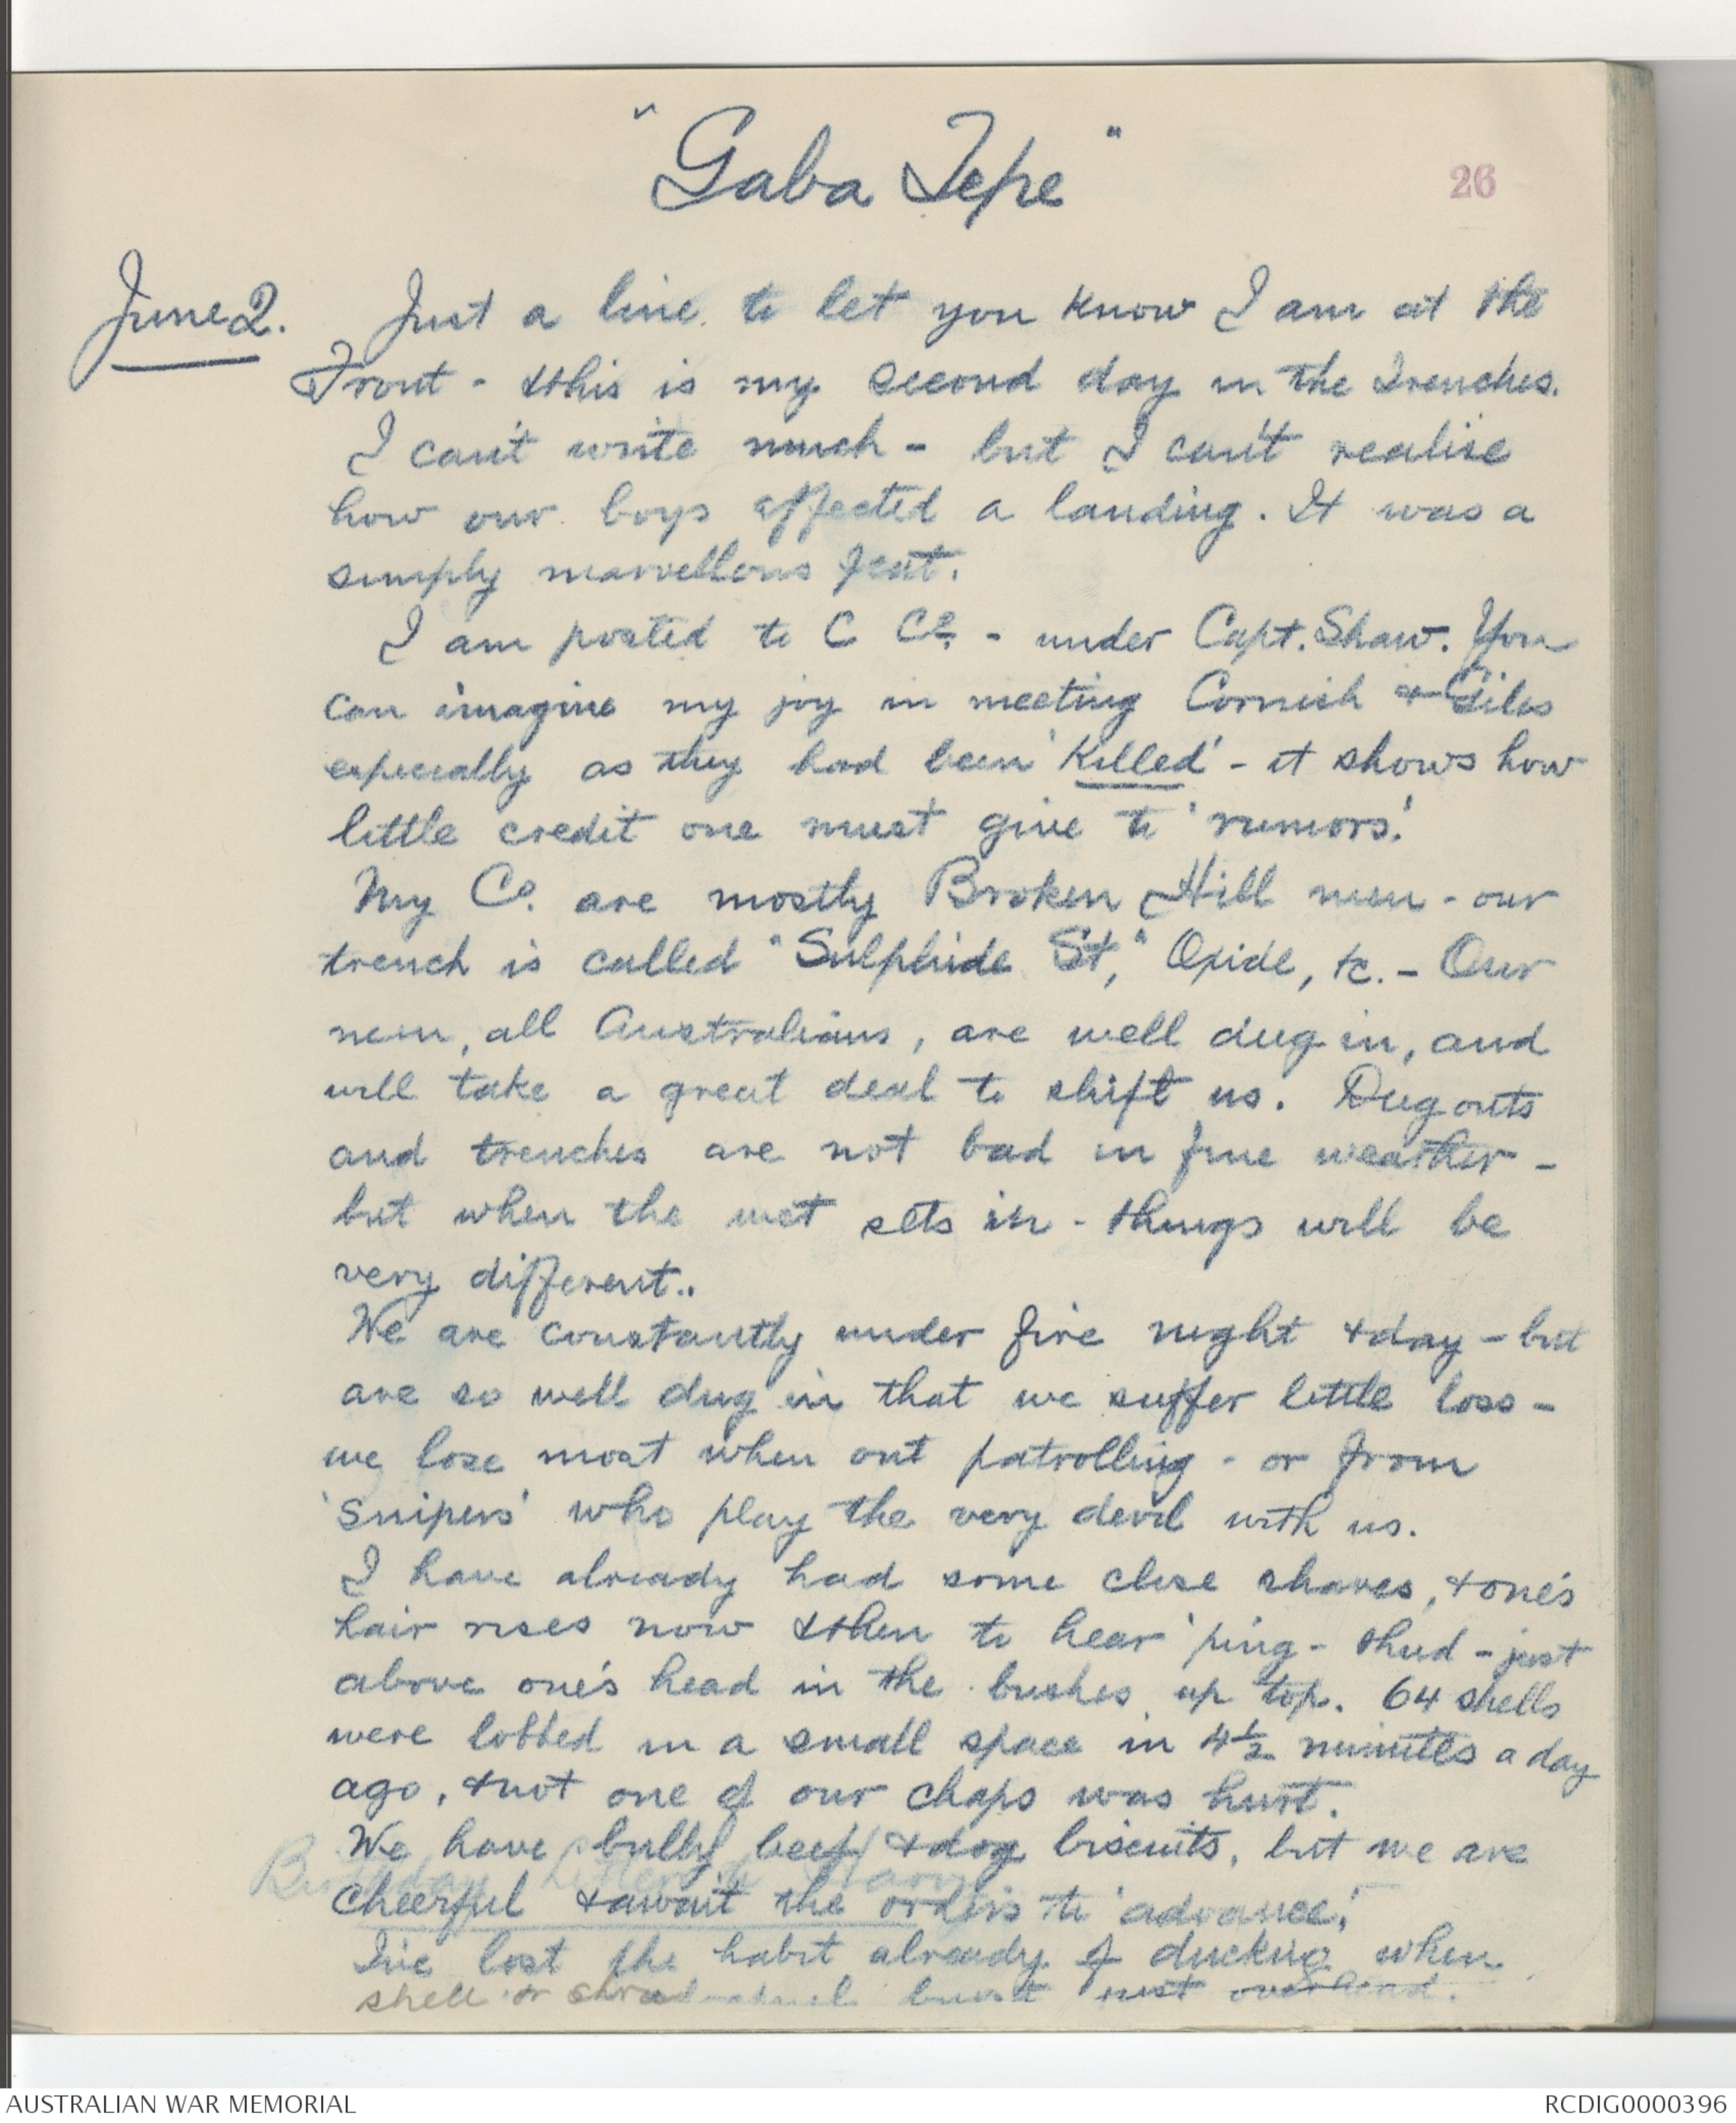 "Gaba Tepe"
26
June 2. Just a line to let you know I am at the
Front - & this is my second day in the trenches.
I can't write much - but I can't realise
how our boys effected a landing. It was a
simply marvellous feat.
I am posted to C Co. - under Capt. Shaw. You
can imagine my joy in meeting Cornish & Giles
especially as they had been 'killed' - it shows how
little credit one must give to 'rumors'.
My Co. are mostly Broken Hill men - our
trench is called "Sulphide St," Oxide, &c. - Our
men, all Australians, are well dug in, and
will take a great deal to shift us. Dug outs
and trenches are not bad in fine weather -
but when the wet sets in - things will be
very different..
We are constantly under fire night & day - but
are so well dug in that we suffer little loss -
we lose most when out patrolling - or from
'snipers' who play the very devil with us.
I have already had some close shaves, & one's
hair rises now & then to hear 'ping - thud - just
above one's head in the bushes up top. 64 shells
were lobbed in a small space in 4½ minutes a day
ago, & not one of our chaps was hurt.
We have bully beef & dog biscuits, but we are
cheerful & await the orders to 'advance'.
I've lost the habit already of ducking when
shell or burst just overhead.
AUSTRALIAN WAR MEMORIAL
RCDIG0000396